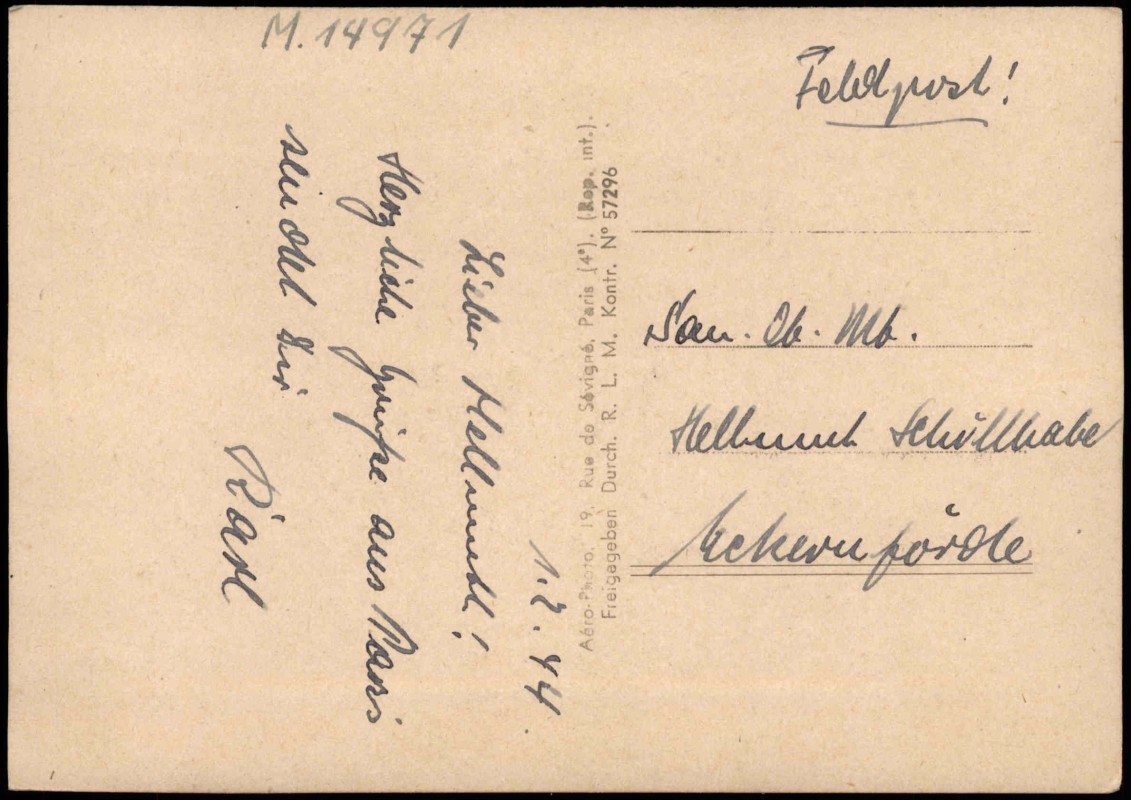 M.14971
Feldpost!
1.2.44.
Lieber Hellmuth!
Herzliche Grüße aus Paris
sendet Dir
Karl
Aéro-Photo. 19, Rue de Sévigné, Paris (4°). (Rep. int.).
Freigageben Durch. R. L. M. Kontr. N° 57296
San. Ob. Mt.
Hellmuth
Eckernförde